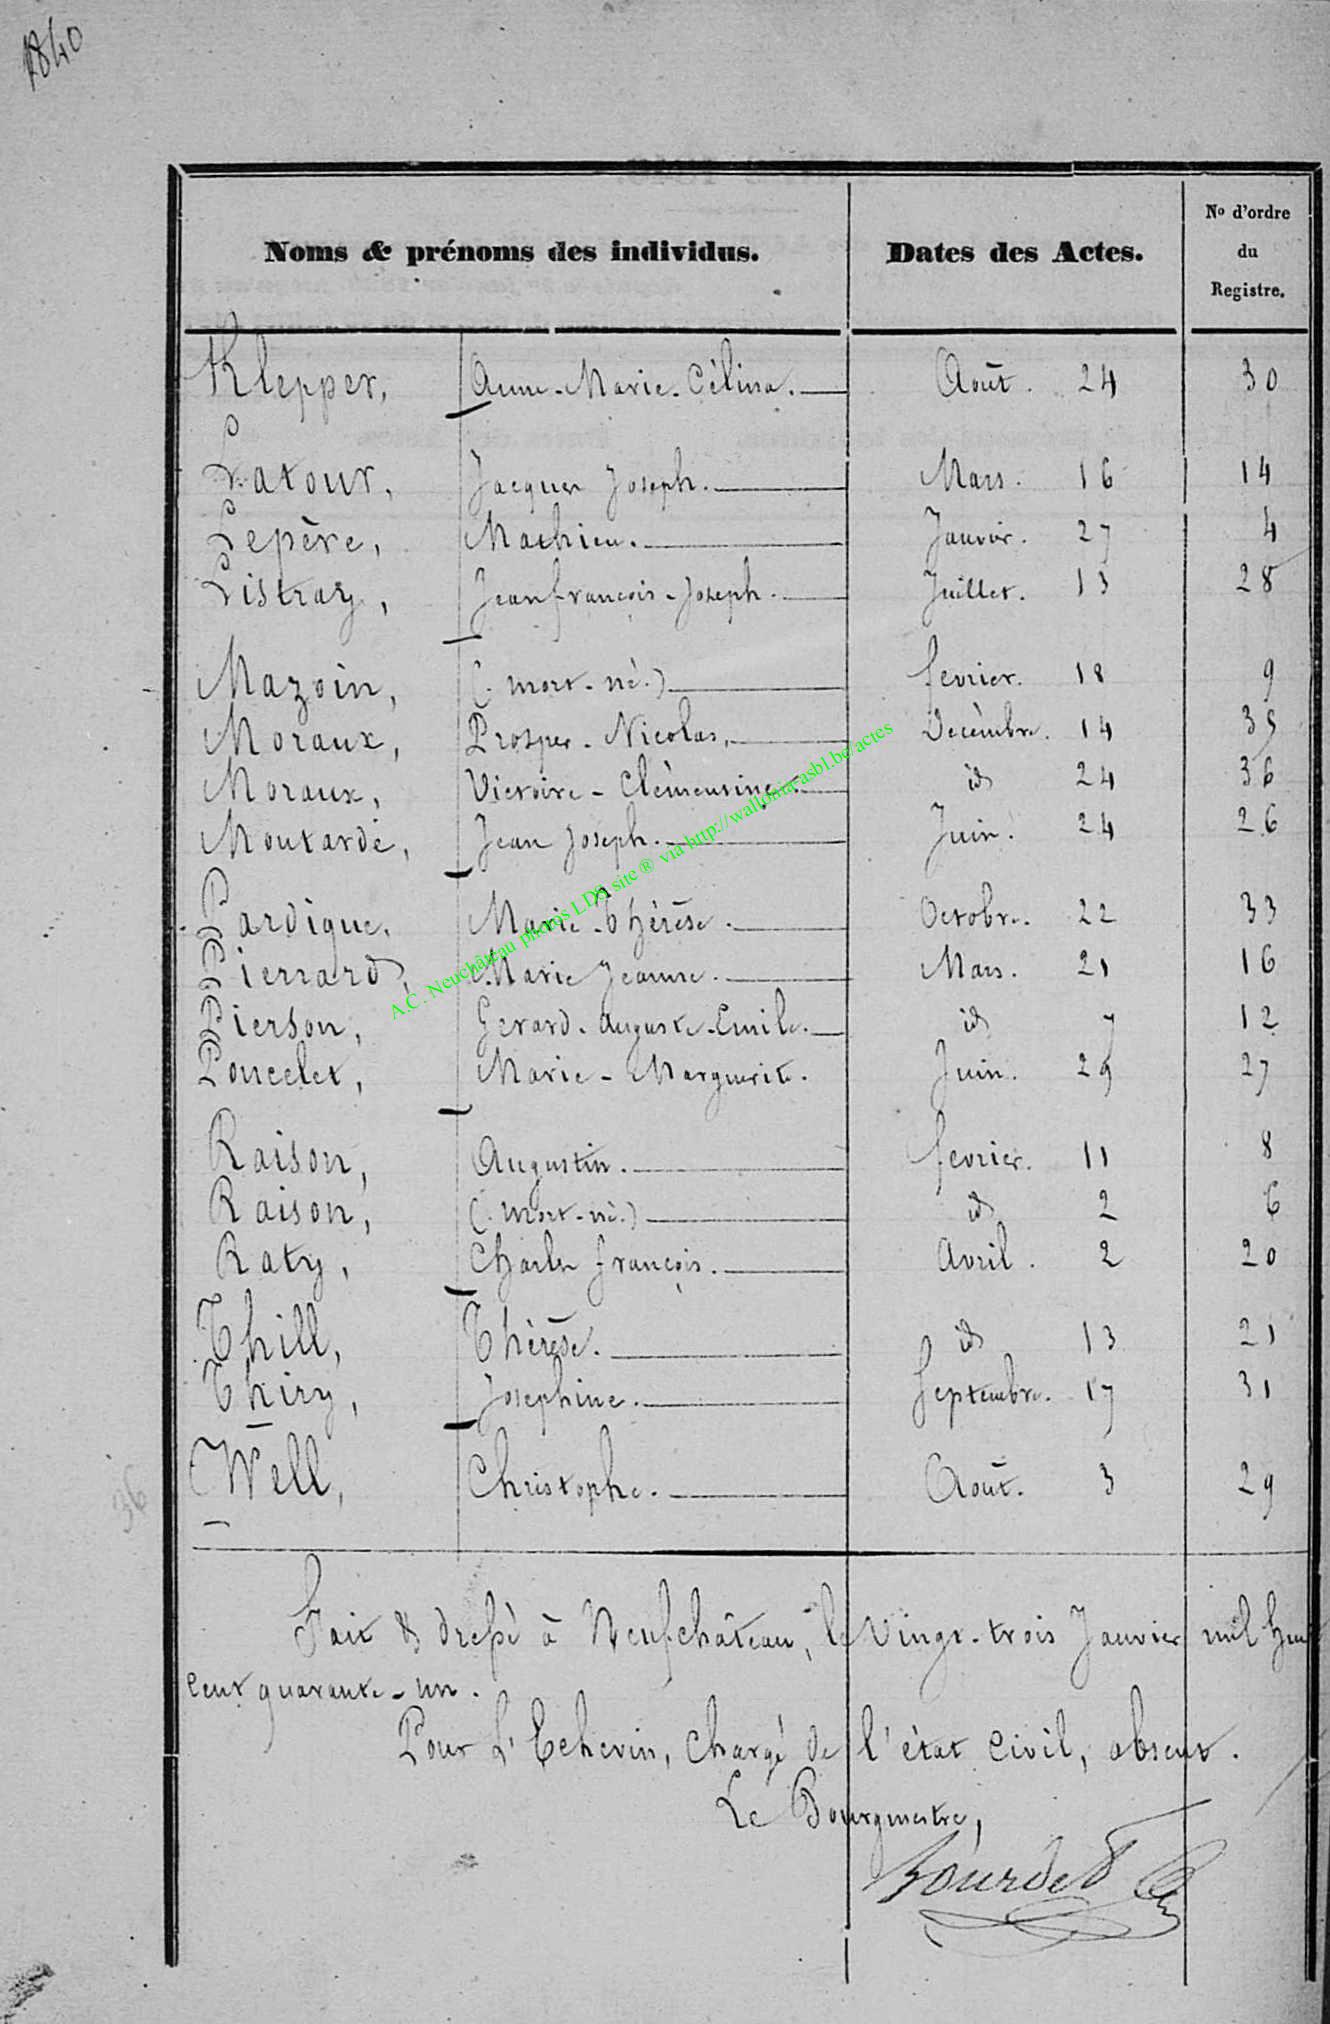 1840
Noms & prénoms des individus. Dates des Actes. No d'ordre du Registre.
Klepper, Anne-Marie-Célina. Août. 24 30
Latour, Jacques Joseph. Mars. 16 14
Lepère, Mathieu. Janvier. 27 4
Listray, Jean françois-Joseph. Juillet. 13 28
Mazoin, (mort-né.) fevrier. 18 9
Moraux, Prosper-Nicolas, Decèmbre. 14 35
Moraux, Victoire-Clèmentine. id 24 36
Moutarde, Jean Joseph. Juin. 24 26
Pardique, Marie-Thérèse. Octobre. 22 33
Pierrard, Marie Jeanne. Mars. 21 16
Pierson, Gerard-Auguste-Emile. id 7 12
Poncelet, Marie-Marguerite. Juin. 29 27
Raison, Augustin. fevrier. 11 8
Raison, (mort-né.) id 2 6
Raty, Charles françois. Avril. 2 20
Thill, Thèrèse. id 13 21
Thiry, Josephine. Septembre. 17 31
Well, Christophe. Août. 3 29
36
Fait & dressé à Neufchâteau, le vingt-trois Janvier mil huit
cent quarante-un.
Pour L'Echevin, chargé de l'état civil, absent.
Le Bourgmestre,
Bourdet
A.C. Neuchâteau photos LDS site ® via http://wallonia-asbl.be/actes